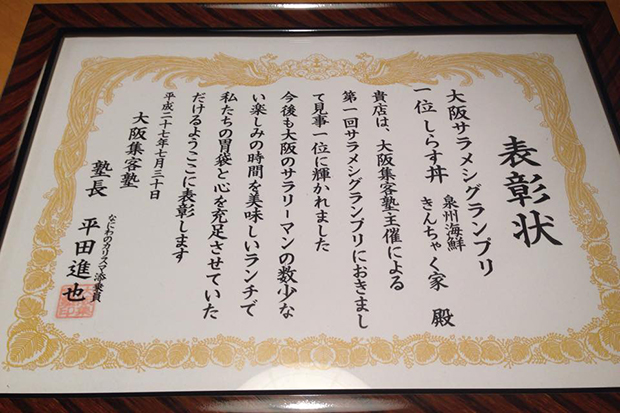 表彰状
大阪サラメシグランプリ
一位 しらす丼
泉州海鮮
きんちゃく家 殿
貴店は、大阪集客塾主催による
第一回サラメシグランプリにおきまし
て見事一位に輝かれました
今後も大阪のサラリーマンの数少な
い楽しみの時間を美味しいランチで
私たちの胃袋と心を充足させていた
だけるようここに表彰します
平成二十七年七月三十日
大阪集客塾
なにわのカリスマ添乗員
塾長 平田進也